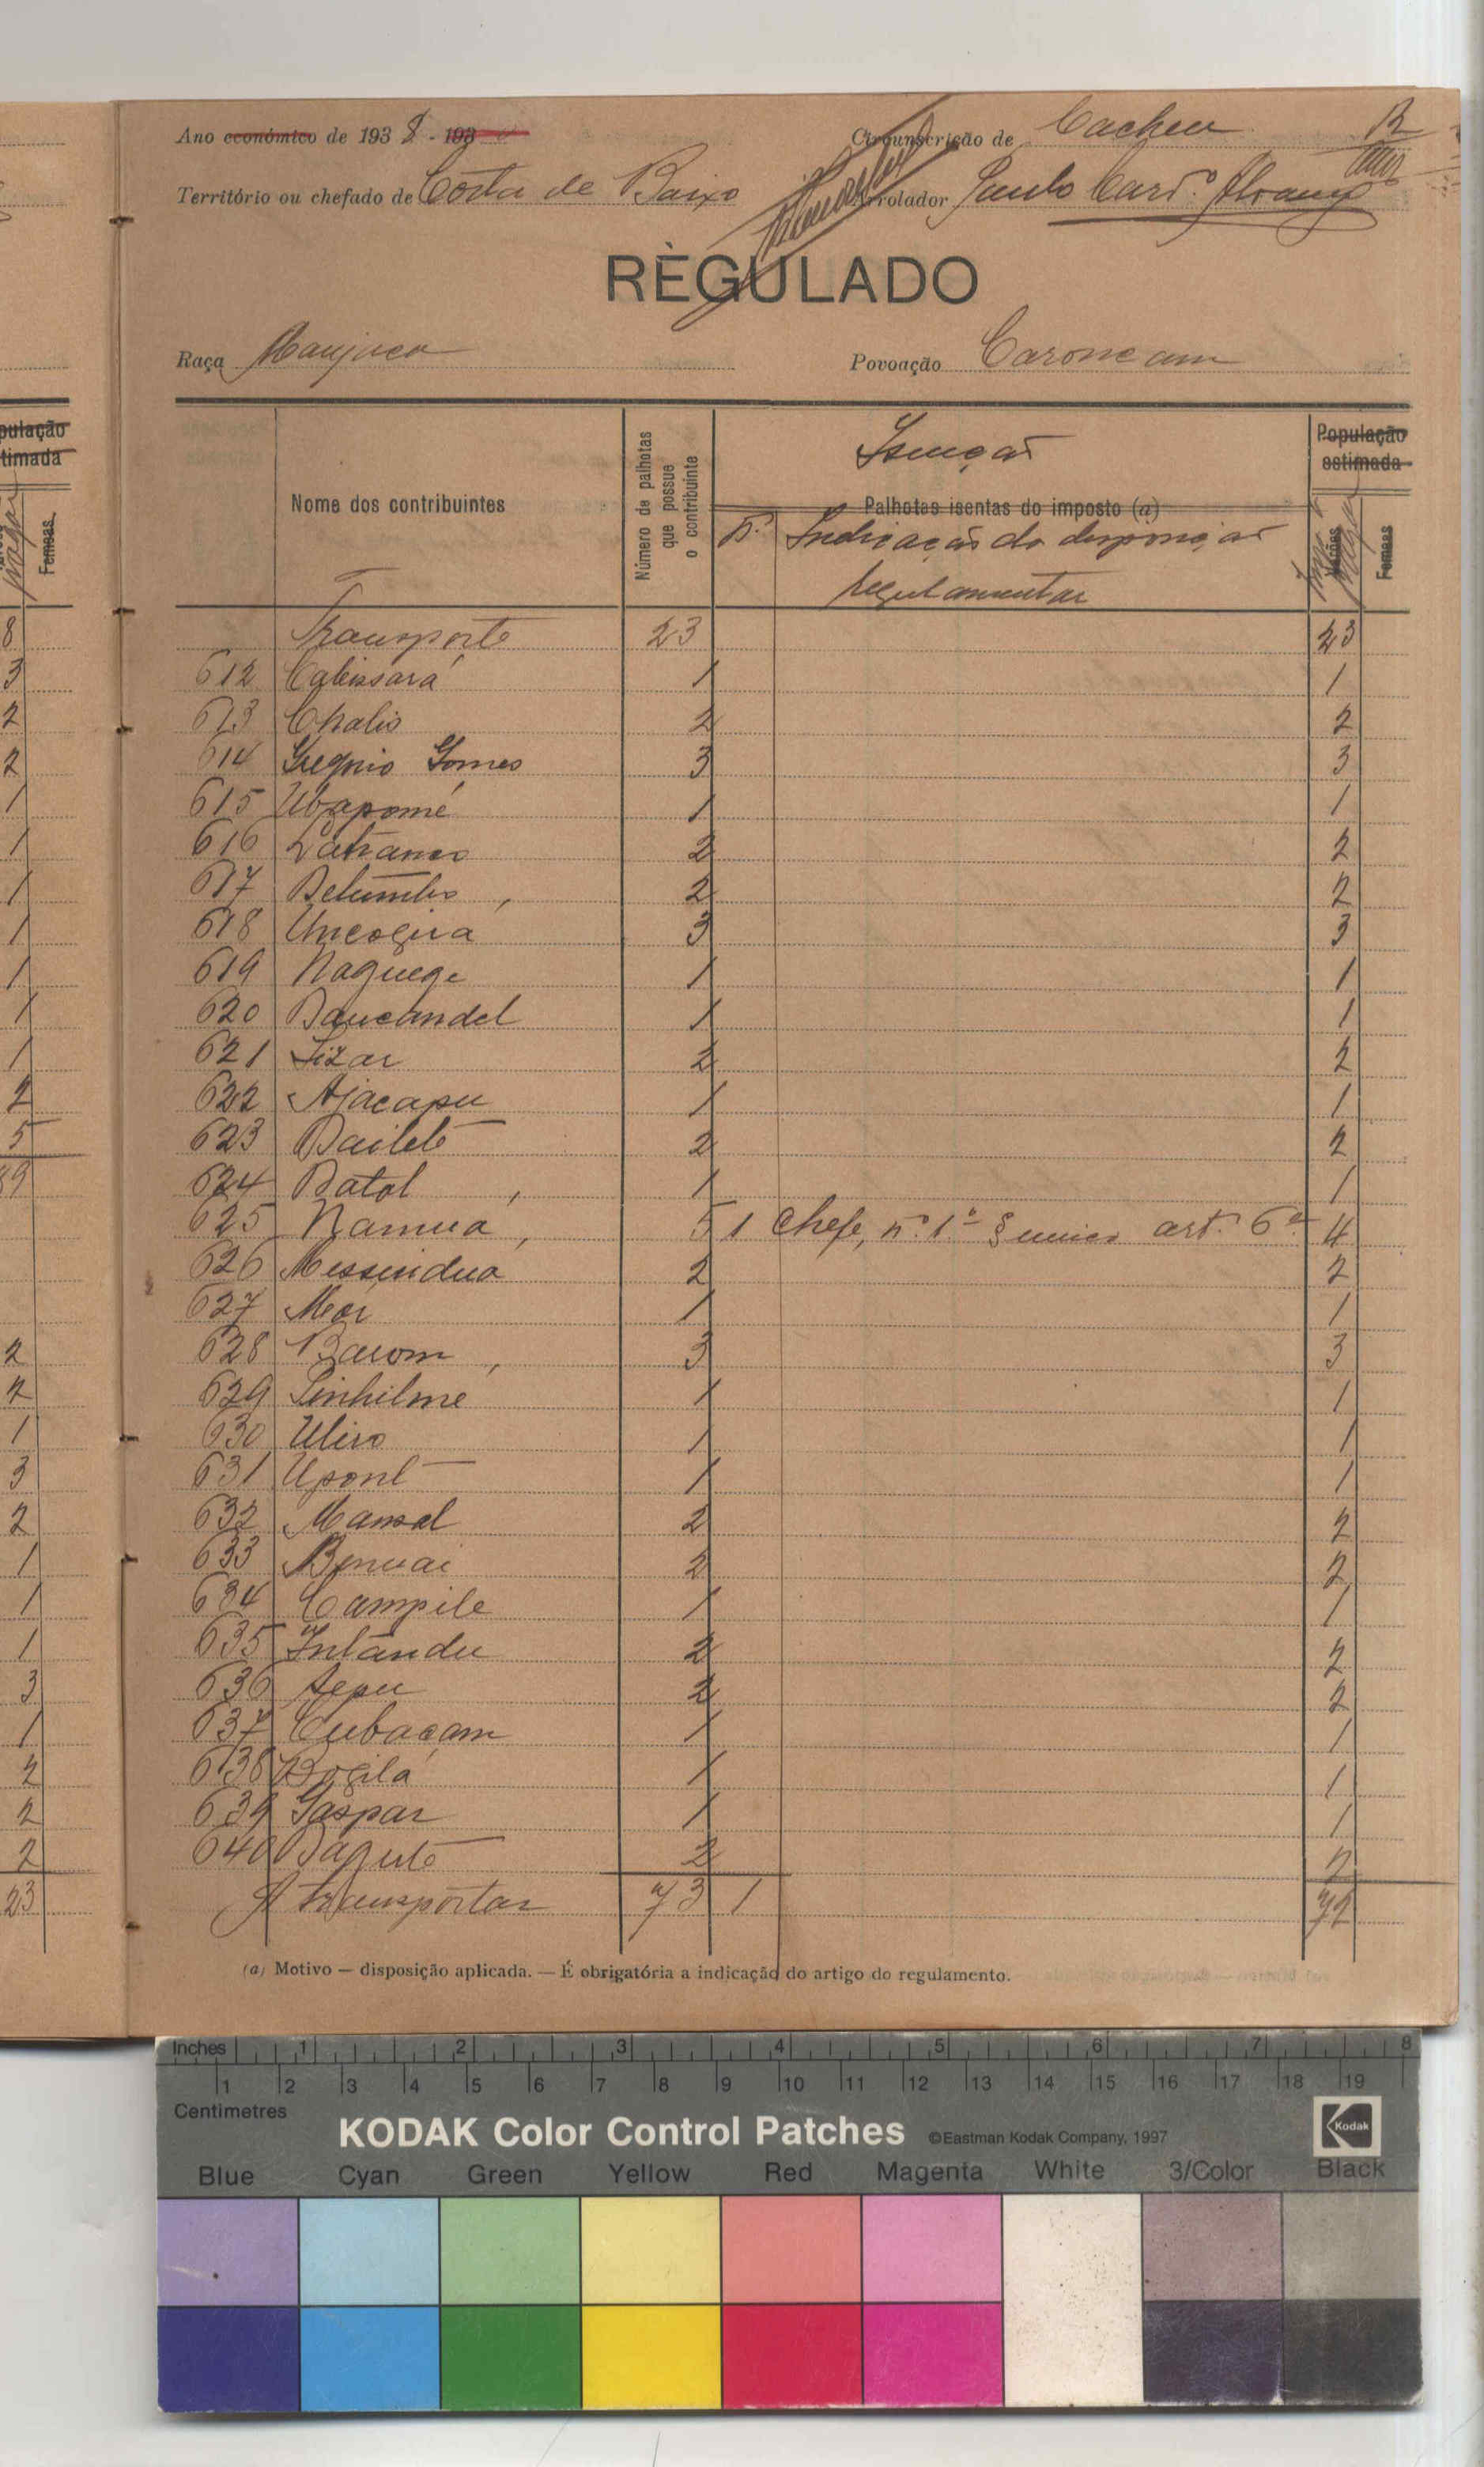 Ano económico de 1938 - 193
Circunscrição de Cacheu
Território ou chefado de Costa de Baixo
Arrolador Paulo Card.º
REGULADO
Raça Manjaca
Povoação Caroncam
Nome dos contribuintes
Número de palhotas que possue o contribuinte
Isenção
Palhotas isentas do imposto (a)
N.º Indicação da disposição
regulamentar
População estimada
Varões
Femeas
pulação
timada
Femeas
Transporte 23 23
612 Cabinsará 1 1
613 Chalis 2 2
614 Gregorio Gomes 3 3
615 Ubapomé 1 1
616 2 2
617 2 2
618 3 3
619 Naguege 1 1
620 Baucandel 1 1
621 2 2
622 Ajacapu 1 1
623 Bailete 2 2
624 Batol 1 1
625 Namua 5 1 Chefe, n.º 1.º § unico art.º 6º 4
626 Messindua 2 2
627 1 1
628 Barom 3 3
629 Sinhilme 1 1
630 Uliro 1 1
631 Upont 1 1
632 Mansal 2 2
633 Benuai 2 2
634 Campile 1 1
635 Intandu 2 2
636 2 2
637 Cubacam 1 1
638 1 1
639 Gaspar 1 1
640 2 2
A transportar 73 1 72
(a) Motivo — disposição aplicada. — É obrigatória a indicação do artigo do regulamento.
8
3
2
2
1
1
1
1
1
1
1
2
5
2
2
1
3
2
1
1
1
3
1
2
2
2
23
Inches 1 2 3 4 5 6 7 8
1 2 3 4 5 6 7 8 9 10 11 12 13 14 15 16 17 18 19
Centimetres
KODAK Color Control Patches ©Eastman Kodak Company, 1997 Kodak
Blue Cyan Green Yellow Red Magenta White 3/Color Black